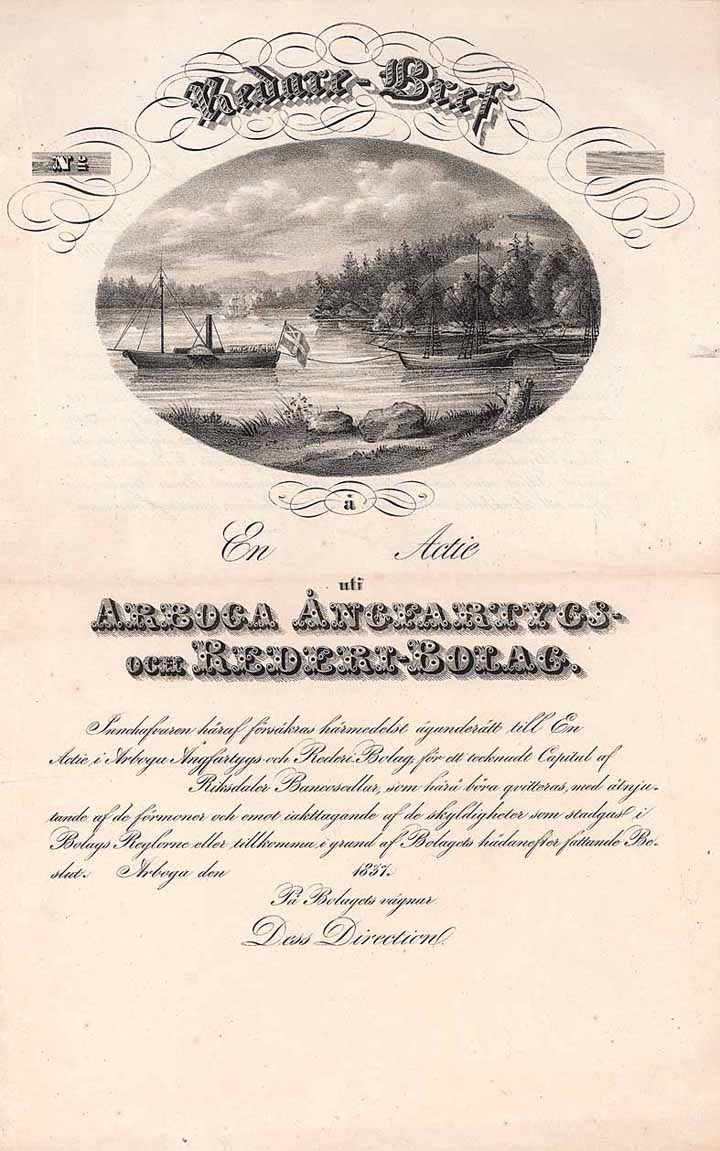 Redare-Bref
No
å
En Actie
uti
ARBOGA ÅNGFARTYGS-
OCH REDERI-BOLAG.
Innehafvaren häraf försäkras härmedelst äganderätt till En
Actie i Arboga Ångfartygs-och Rederi-Bolag, för ett tecknadt Capital af
Riksdaler Bancosedlar, som härå böra qvitteras, med åtnju-
tande af de förmoner och emot iakttagande af de skyldigheter som stadgas i
Bolags Reglorne eller tillkomma i grund af Bolagets hädanefter fattande Be-
slut. Arboga den 1837.
På Bolagets vägnar
Dess Direction.